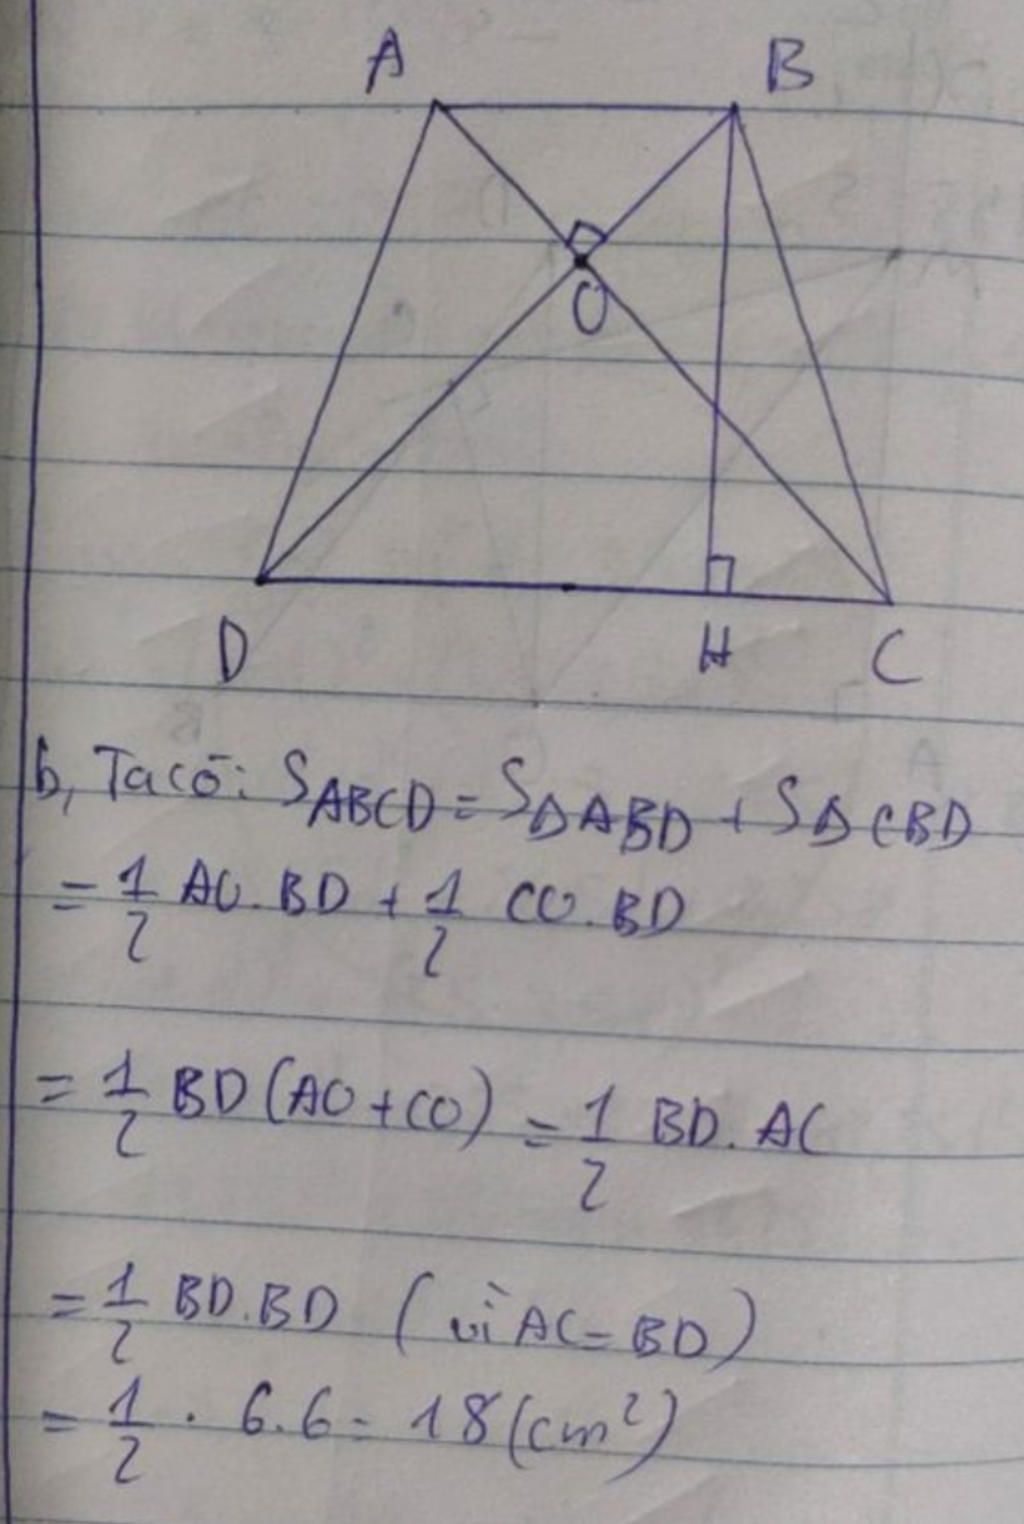 A B
O
D H C
b, Ta có: SABCD = SΔABD + SΔCBD
= 1/2 AO.BD + 1/2 CO.BD
= 1/2 BD(AO+CO) = 1/2 BD.AC
= 1/2 BD.BD (vì AC=BD)
= 1/2 . 6.6= 18(cm²)